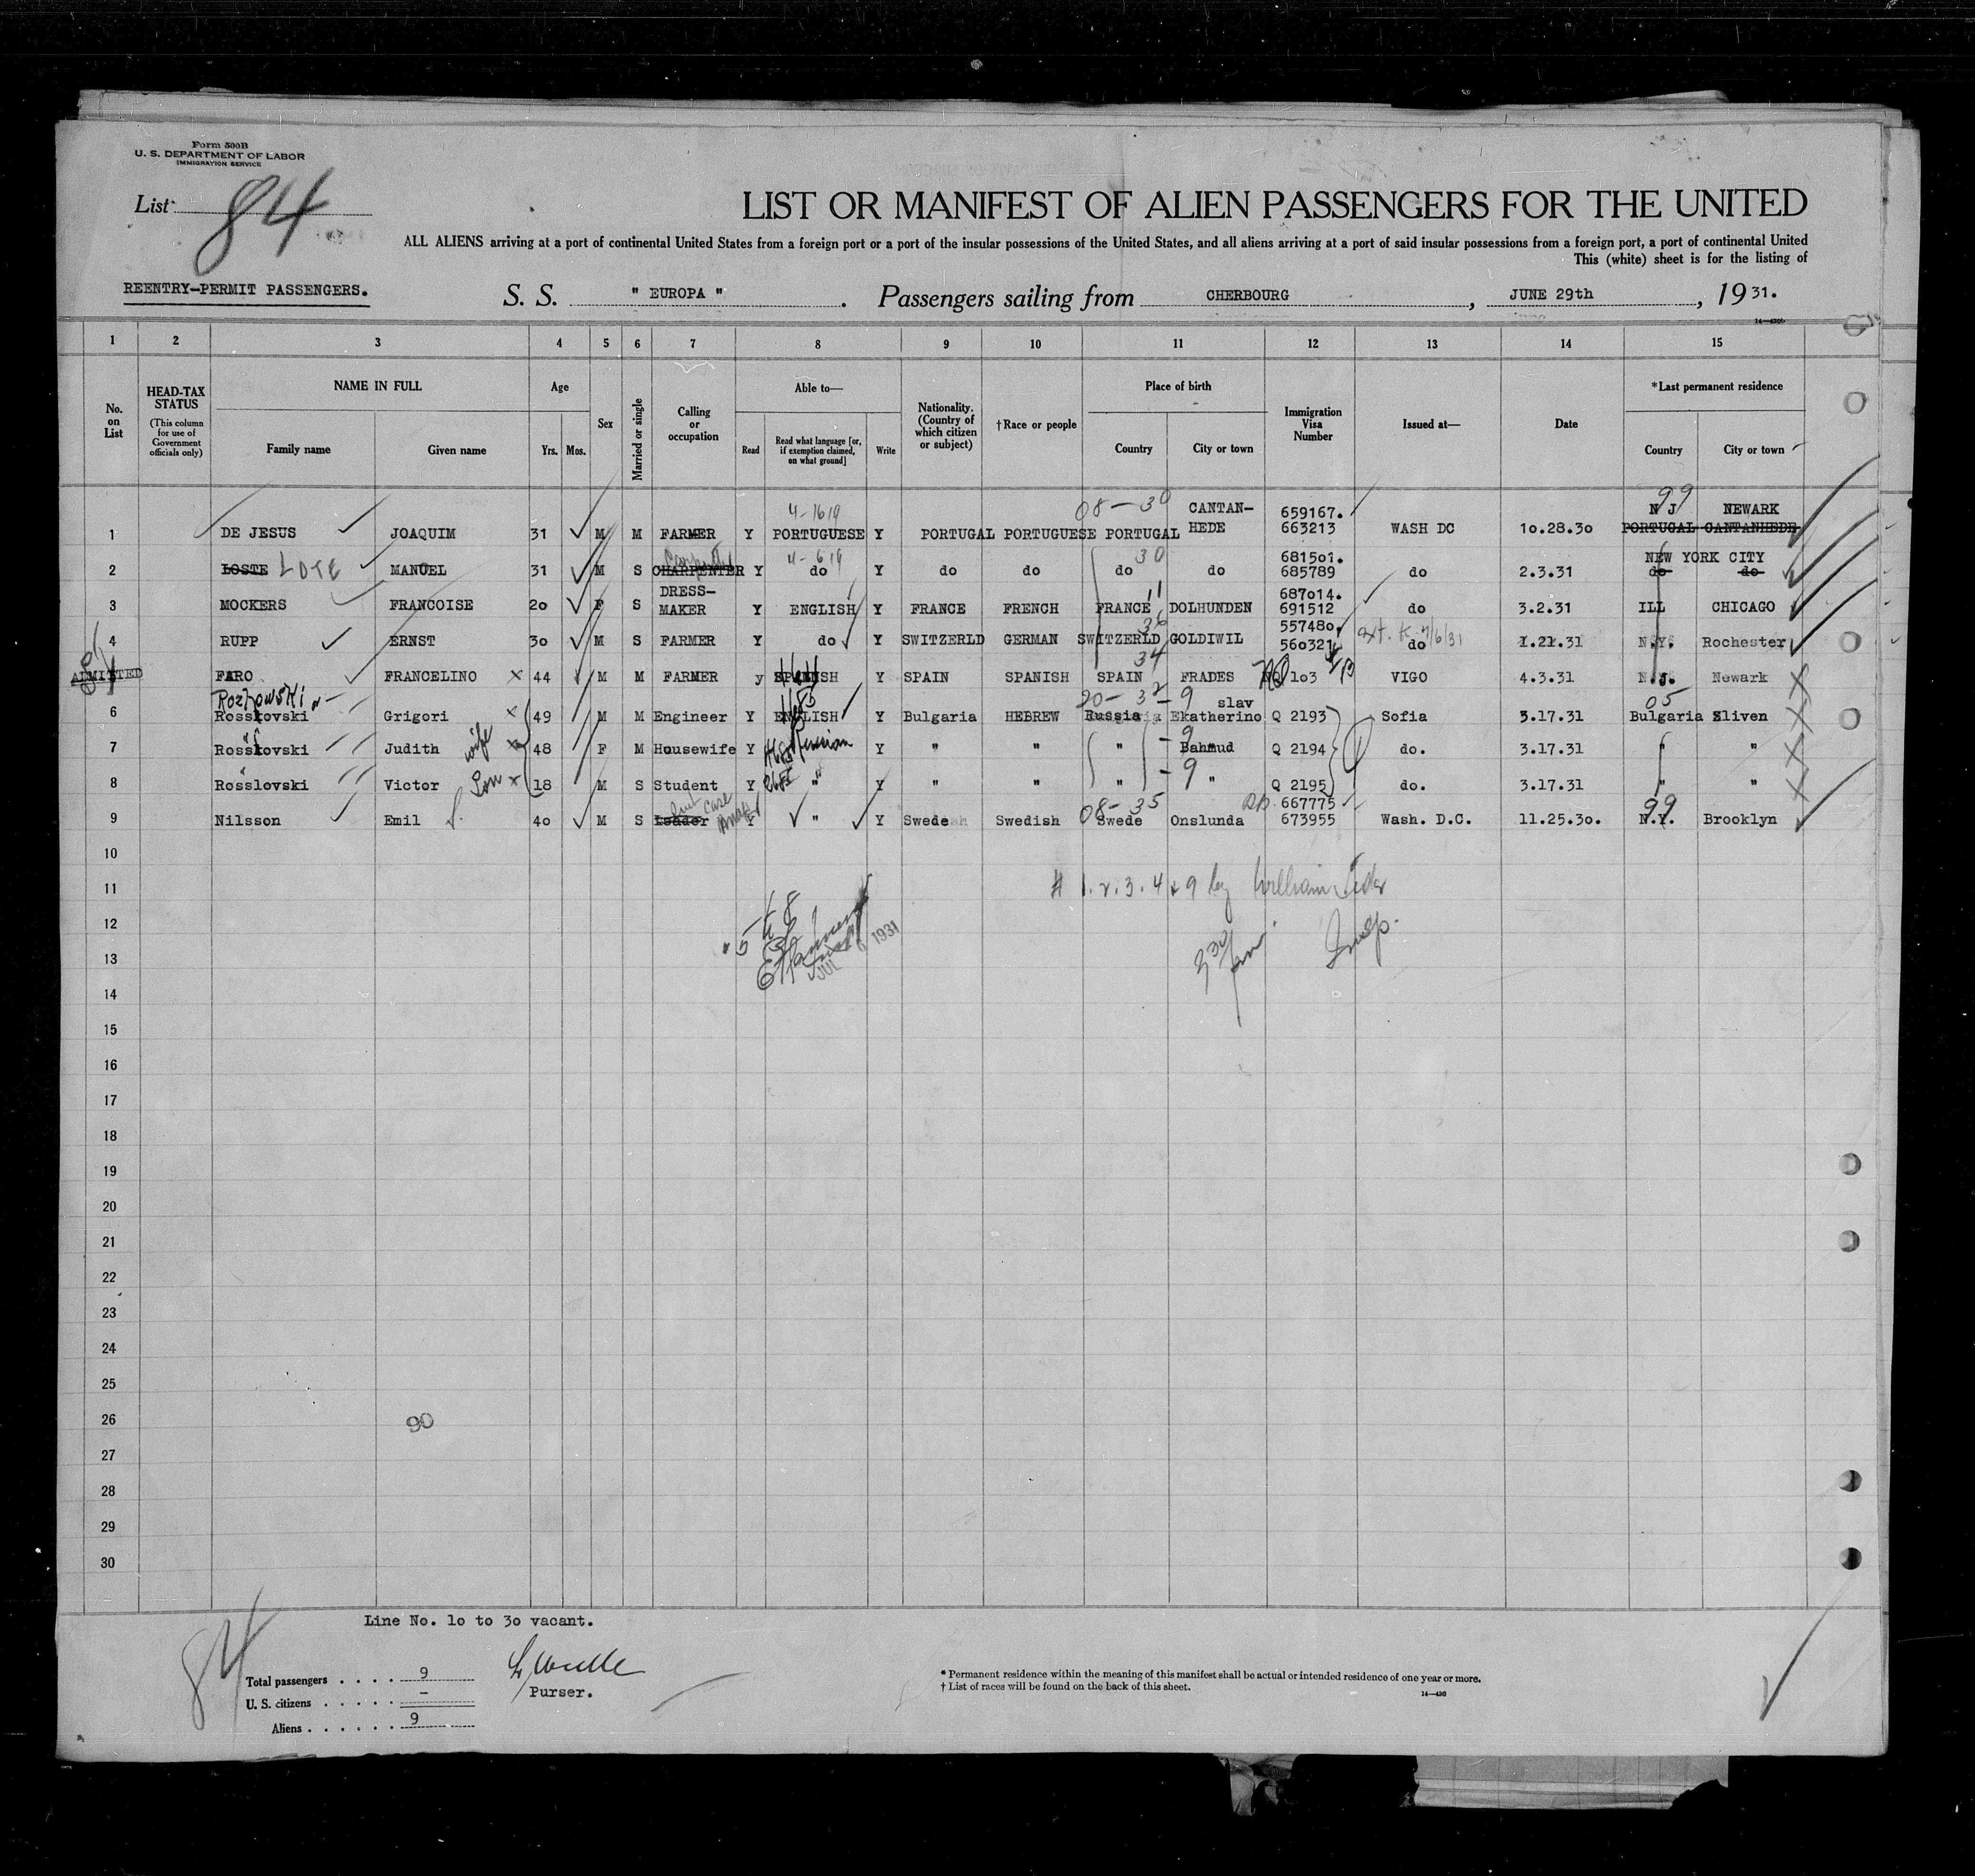 Form 500B
U. S. DEPARTMENT OF LABOR
IMMIGRATION SERVICE
List 84
LIST OR MANIFEST OF ALIEN PASSENGERS FOR THE UNITED
ALL ALIENS arriving at a port of continental United States from a foreign port or a port of the insular possessions of the United States, and all aliens arriving at a port of said insular possessions from a foreign port, a port of continental United
This (white) sheet is for the listing of
REENTRY-PERMIT PASSENGERS. S. S. " EUROPA ". Passengers sailing from CHERBOURG, JUNE 29th, 1931.
14—430b
1 2 3 4 5 6 7 8 9 10 11 12 13 14 15
No. on List
HEAD-TAX STATUS
(This column for use of Government officials only)
NAME IN FULL
Family name Given name
Age
Yrs. Mos.
Sex
Married or single
Calling or occupation
Able to—
Read
Read what language [or, if exemption claimed, on what ground]
Write
Nationality. (Country of which citizen or subject)
†Race or people
Place of birth
Country City or town
Immigration Visa Number
Issued at—
Date
*Last permanent residence
Country City or town
4-1619 08-30 CANTAN- 659167. 99 N J NEWARK
1 DE JESUS JOAQUIM 31 M M FARMER Y PORTUGUESE Y PORTUGAL PORTUGUESE PORTUGAL HEDE 663213 WASH DC 10.28.30 PORTUGAL CANTANHEDE
30 681501. NEW YORK CITY
2 LOSTE LOTE MANUEL 31 M S CHARPENTER Y do Y do do do do 685789 do 2.3.31 do do
DRESS- 11 687014.
3 MOCKERS FRANCOISE 20 F S MAKER Y ENGLISH Y FRANCE FRENCH FRANCE DOLHUNDEN 691512 do 3.2.31 ILL CHICAGO
36 557480.
4 RUPP ERNST 30 M S FARMER Y do Y SWITZERLD GERMAN SWITZERLD GOLDIWIL 560321 do 1.21.31 N.Y. Rochester
34
ADMITTED FARO FRANCELINO 44 M M FARMER y SPANISH Y SPAIN SPANISH SPAIN FRADES 103 VIGO 4.3.31 N.J. Newark
Rozhowski 20-32-9 slav 05
6 Rosslovski Grigori 49 M M Engineer Y ENGLISH Y Bulgaria HEBREW Russia Ekatherino Q 2193 Sofia 3.17.31 Bulgaria Sliven
7 Rosslovski Judith wife 48 F M Housewife Y Russian Y " " " -9 Bahmud Q 2194 do. 3.17.31 " "
8 Rosslovski Victor Son 18 M S Student Y " Y " " " -9 " Q 2195 do. 3.17.31 " "
08-35 667775 99
9 Nilsson Emil 40 M S Y " Y Swede Swedish Swede Onslunda 673955 Wash. D.C. 11.25.30. N.Y. Brooklyn
10
11 # 1. 2. 3. 4 & 9 by William
12 Insp.
13 JUL 1931
14
15
16
17
18
19
20
21
22
23
24
25
26 90
27
28
29
30
Line No. 10 to 30 vacant.
84
Total passengers . . . . 9
Purser.
U. S. citizens . . . . . –
Aliens . . . . . . 9
* Permanent residence within the meaning of this manifest shall be actual or intended residence of one year or more.
† List of races will be found on the back of this sheet.
14—430